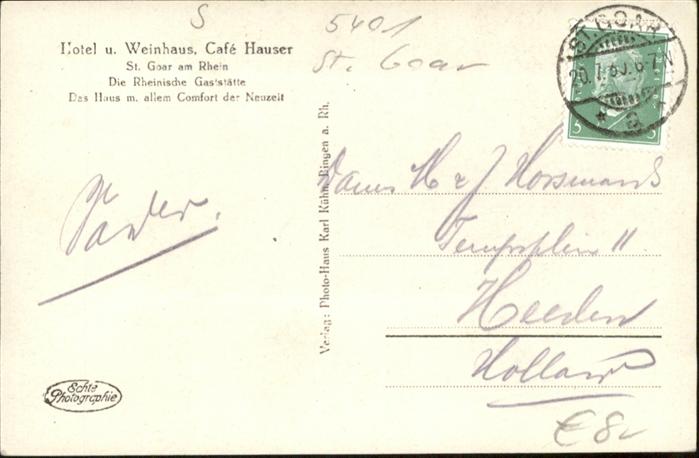 S
5401
St. Goar
Hotel u. Weinhaus, Café Hauser
St. Goar am Rhein
Die Rheinische Gaststätte
Das Haus m. allem Comfort der Neuzeit
ST. GOAR
20.7.30.6-7
a
5 5
Dames H & J Horsmans
11
Heerlen
Holland
Verlag: Photo-Haus Karl Kühn, Bingen a. Rh.
Echte
Photographie
€ 8,-